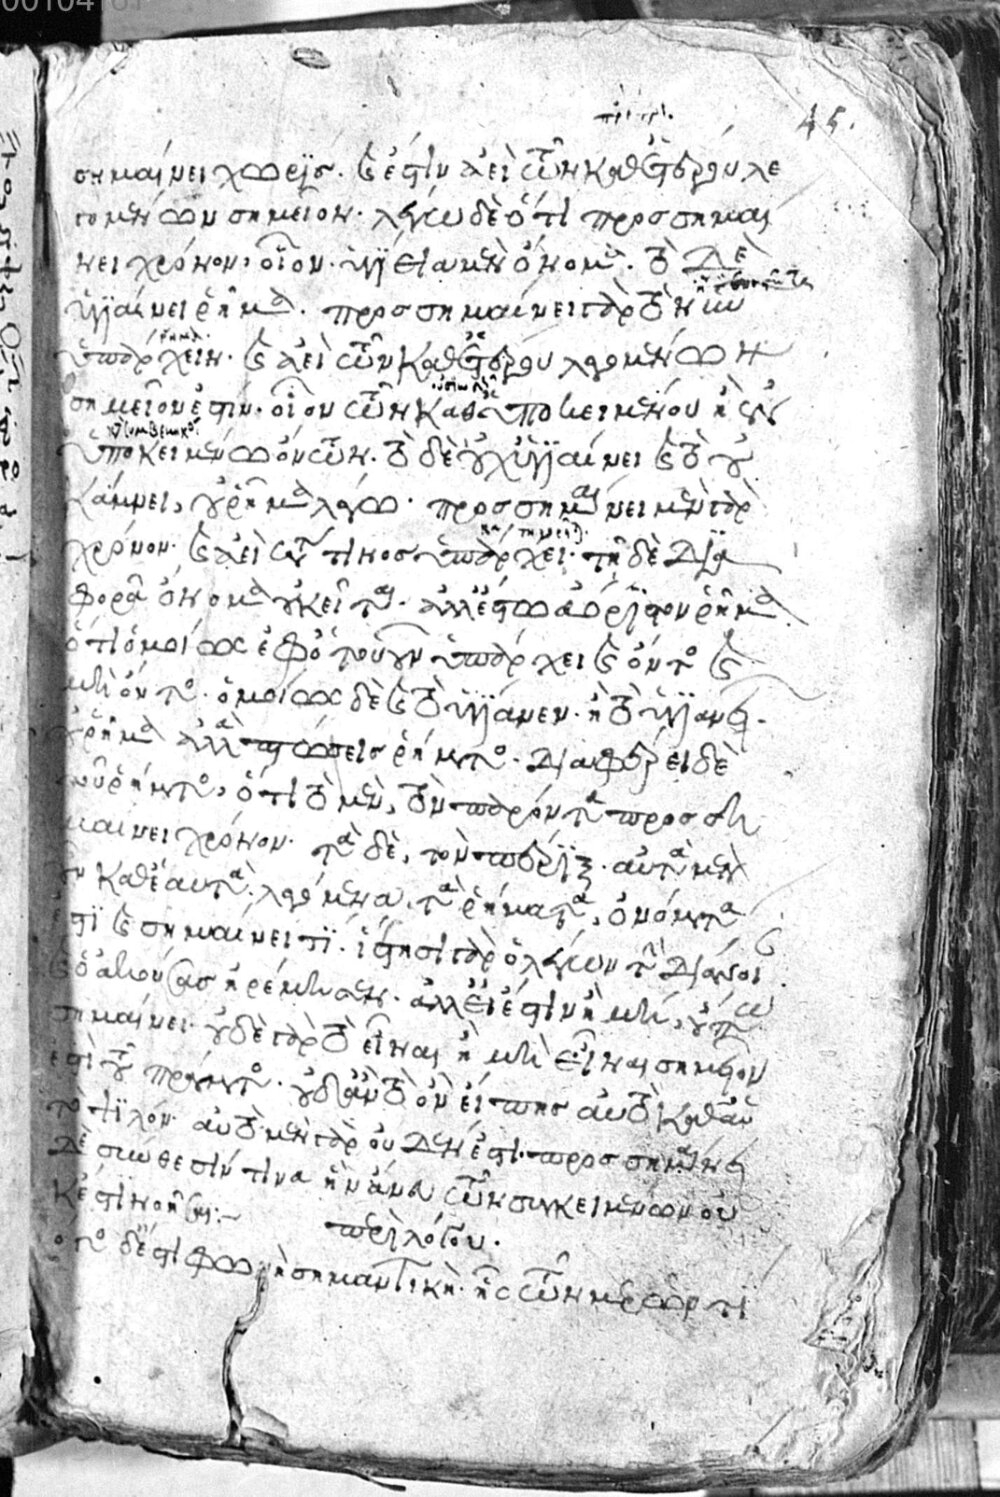 00104161
45.
σημαίνει χωρίς. καὶ ἔστιν ἀεὶ τῶν καθ' ἑτέρου λε
γομένων σημεῖον. λέγω δὲ ὅτι προσσημαί
νει χρόνον, οἷον. ὑγίεια μὲν ὄνομα. τὸ δὲ
ὑγιαίνει ῥῆμα. προσσημαίνει γὰρ τὸ νῦν
ὑπάρχειν. καὶ ἀεὶ τῶν καθ' ἑτέρου λεγομένων
σημεῖόν ἐστιν. οἷον τῶν καθ' ὑποκειμένου ἢ ἐν
ὑποκειμένῳ ὄντων. τὸ δὲ οὐχ ὑγιαίνει καὶ τὸ οὐ
κάμνει, οὐ ῥῆμα λέγω. προσσημαίνει μὲν γὰρ
χρόνον. καὶ ἀεὶ κατά τινος ὑπάρχει. τῇ δὲ δια
φορᾷ ὄνομα οὐ κεῖται. ἀλλ' ἔστω ἀόριστον ῥῆμα
ὅτι ὁμοίως ἐφ' ὁτουοῦν ὑπάρχει καὶ ὄντος καὶ
μὴ ὄντος. ὁμοίως δὲ καὶ τὸ ὑγίανεν. ἢ τὸ ὑγιανεῖ.
οὐ ῥῆμα ἀλλὰ πτώσεις ῥήματος. διαφέρει δὲ
τοῦ ῥήματος, ὅτι τὸ μὲν, τὸν παρόντα προσση
μαίνει χρόνον. τὰ δὲ, τὸν πέριξ. αὐτὰ μὲν
οὖν καθ' ἑαυτὰ λεγόμενα τὰ ῥήματα, ὀνόματά
ἐστι καὶ σημαίνει τι. ἵστησι γὰρ ὁ λέγων τὴν διάνοι
καὶ ὁ ἀκούσας ἠρέμησεν. ἀλλ' εἰ ἔστιν ἢ μή, οὔπω
σημαίνει. οὐδὲ γὰρ τὸ εἶναι ἢ μὴ εἶναι σημεῖόν
ἐστι τοῦ πράγματος. οὐδ' ἂν τὸ ὂν εἴπῃς αὐτὸ καθ' αὑ
τὸ ψιλόν. αὐτὸ μὲν γὰρ οὐδέν ἐστι. προσσημαίνει
δὲ σύνθεσίν τινα ἣν ἄνευ τῶν συγκειμένων οὐ
κ ἔστι νοῆσαι:~
περὶ λόγου.
λόγος δέ ἐστι φωνὴ σημαντικὴ. ἧς τῶν μερῶν τι